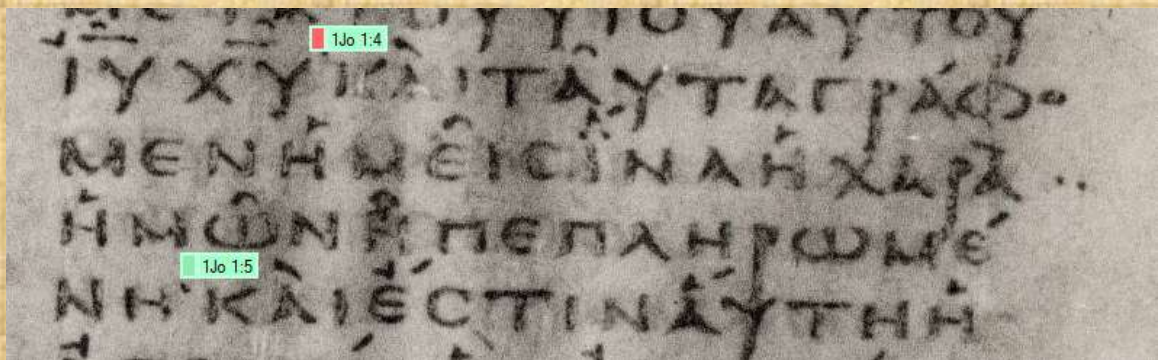 ΜΕΤΑΤΟΥΥΙΟΥΑΥΤΟΥ
1Jo 1:4
ΙΥΧΥΚΑΙΤΑΥΤΑΓΡΑΦΟ
ΜΕΝΗΜΕΙϹΙΝΑΗΧΑΡΑ
ΗΜΩΝΗΠΕΠΛΗΡΩΜΕ
1Jo 1:5
ΝΗΚΑΙΕϹΤΙΝΑΥΤΗΗ